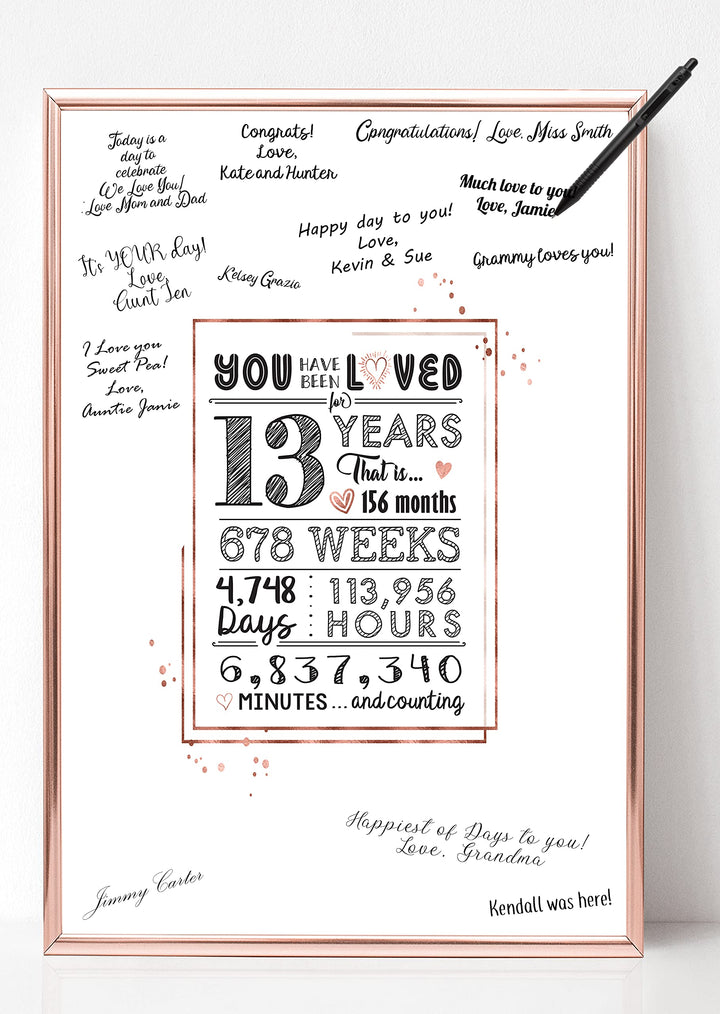 Today is a
day to
celebrate
We Love You!
Love Mom and Dad
Congrats!
Love,
Kate and Hunter
Cpngratulations! Love, Miss Smith
Much love to you!
Love, Jamie
Happy day to you!
Love,
Kevin & Sue
Grammy loves you!
It's YOUR day!
Love,
Aunt Jen
Kelsey Grazia
I Love you
Sweet Pea!
Love,
Auntie Janie
YOU HAVE BEEN LOVED
for
13 YEARS
That is...
156 months
678 WEEKS
4,748 Days
113,956 HOURS
6,837,340
MINUTES ... and counting
Happiest of Days to you!
Love, Grandma
Jimmy Carter
Kendall was here!